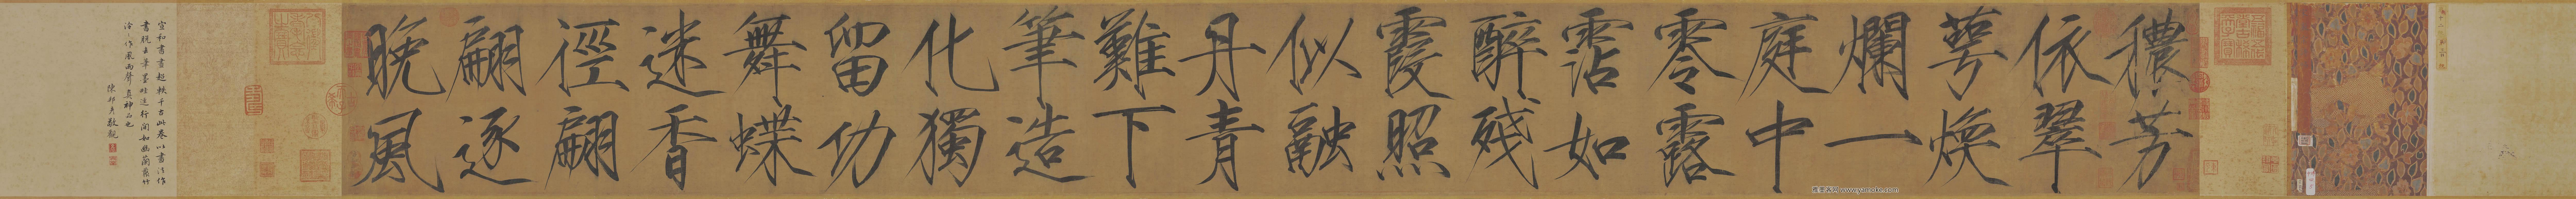 穠芳
依翠
萼煥
爛一
庭中
零露
霑如
醉殘
霞照
似融
丹青
難下
筆造
化獨
留功
舞蝶
迷香
徑翩
翩逐
晚風
宣和書畫超軼千古此卷以書法作
畫脫去筆墨畦逕行間如幽蘭叢竹
泠泠作風雨聲真神品也
陳邦彥敬觀
雅墨齋 www.yamoke.com